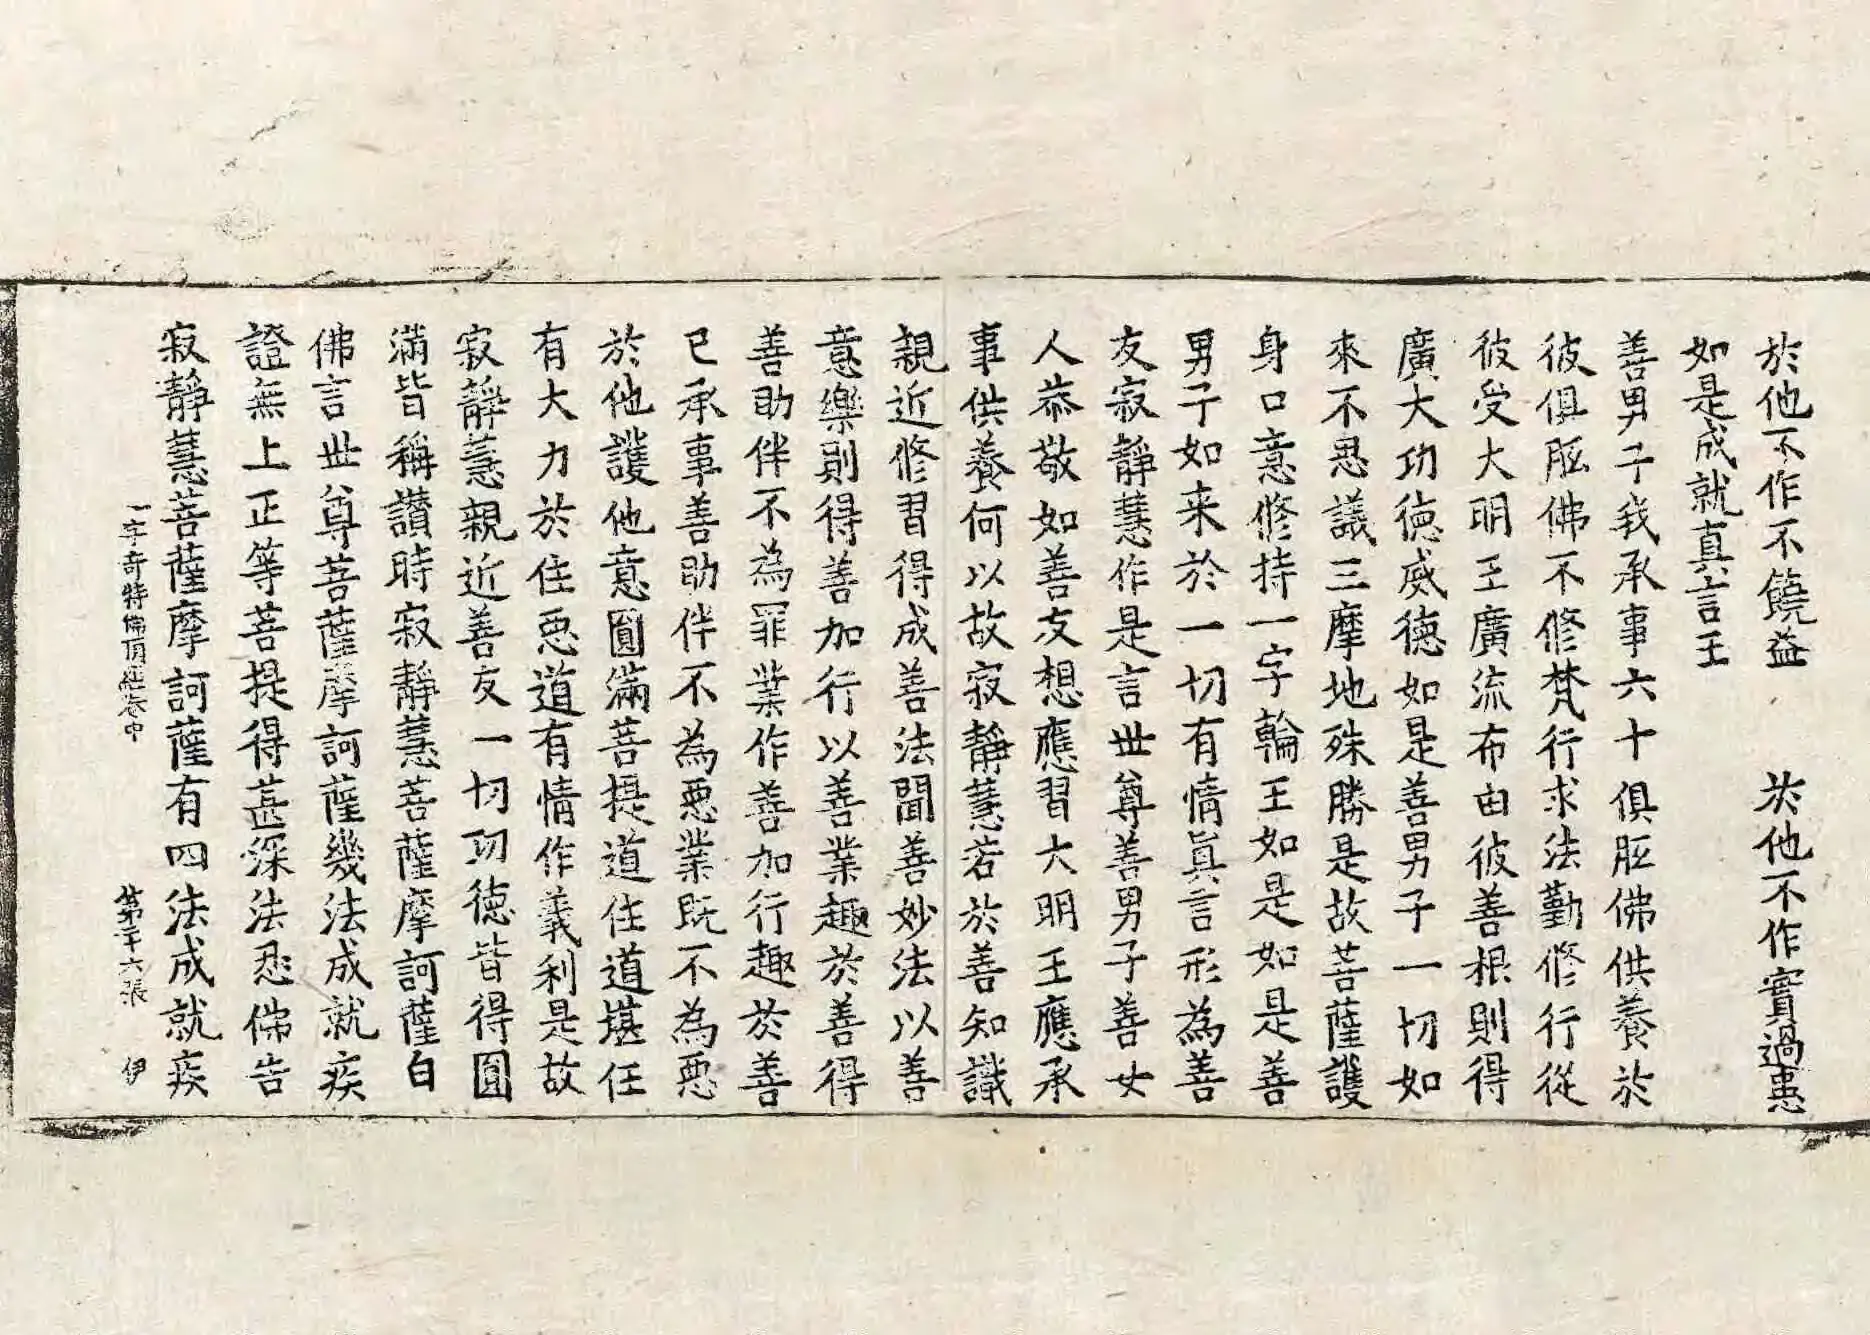 於他不作不饒益　於他不作實過患
如是成就真言王
善男子我承事六十俱胝佛供養於
彼俱胝佛不修梵行求法勤修行從
彼受大明王廣流布由彼善根則得
廣大功德威德如是善男子一切如
來不思議三摩地殊勝是故菩薩護
身口意修持一字輪王如是如是善
男子如来於一切有情真言形為善
友寂靜慧作是言世尊善男子善女
人恭敬如善友想應習大明王應承
事供養何以故寂靜慧若於善知識
親近修習得成善法聞善妙法以善
意樂則得善加行以善業趣於善得
善助伴不為罪業作善加行趣於善
已承事善助伴不為惡業既不為惡
於他護他意圓滿菩提道住道堪任
有大力於住惡道有情作義利是故
寂靜慧親近善友一切功德皆得圓
滿皆稱讚時寂靜慧菩薩摩訶薩白
佛言世尊菩薩摩訶薩幾法成就疾
證無上正等菩提得甚深法忍佛告
寂靜慧菩薩摩訶薩有四法成就疾
一字奇特佛頂經卷中　第十六張　伊